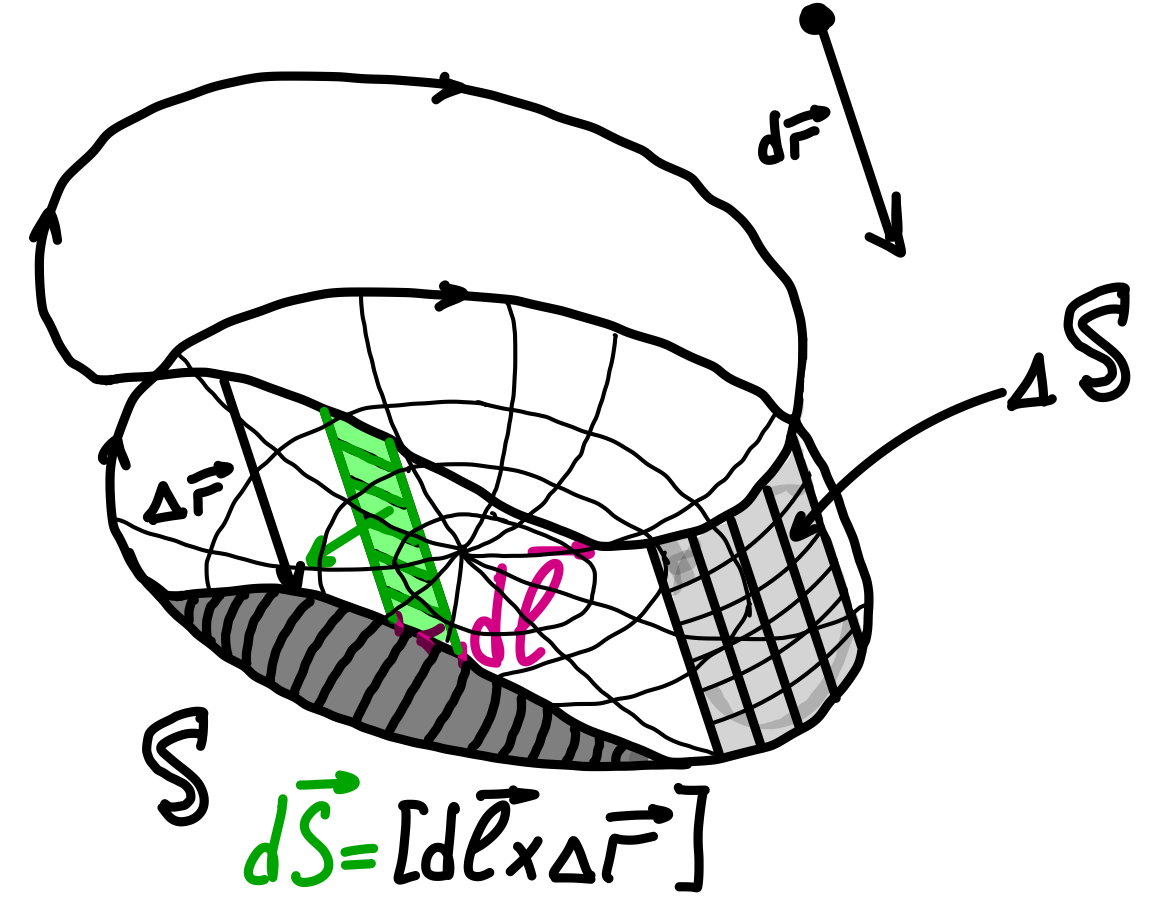 d\vec{r}
Δ𝕊
Δ\vec{r}
d\vec{ℓ}
𝕊
d\vec{S}=[d\vec{ℓ}×Δ\vec{r}]